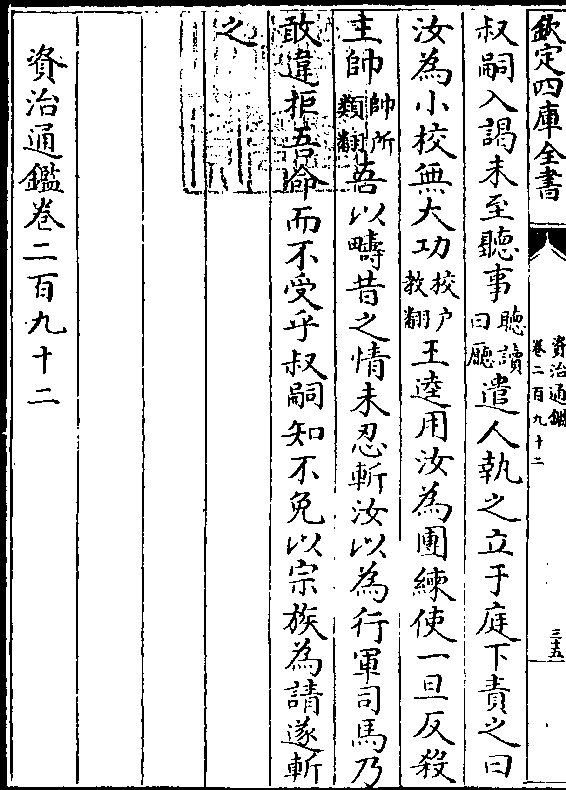 欽定四庫全書
資治通鑑
卷二百九十二
三五
叔嗣入謁未至聽事聽讀曰廳遣人執之立于庭下責之曰
汝為小校無大功挍户教翻王逵用汝為團練使一旦反殺
主帥帥所類翻吾以疇昔之情未忍斬汝以為行軍司馬乃
敢違拒吾命而不受乎叔嗣知不免以宗族為請遂斬
之
資治通鑑卷二百九十二